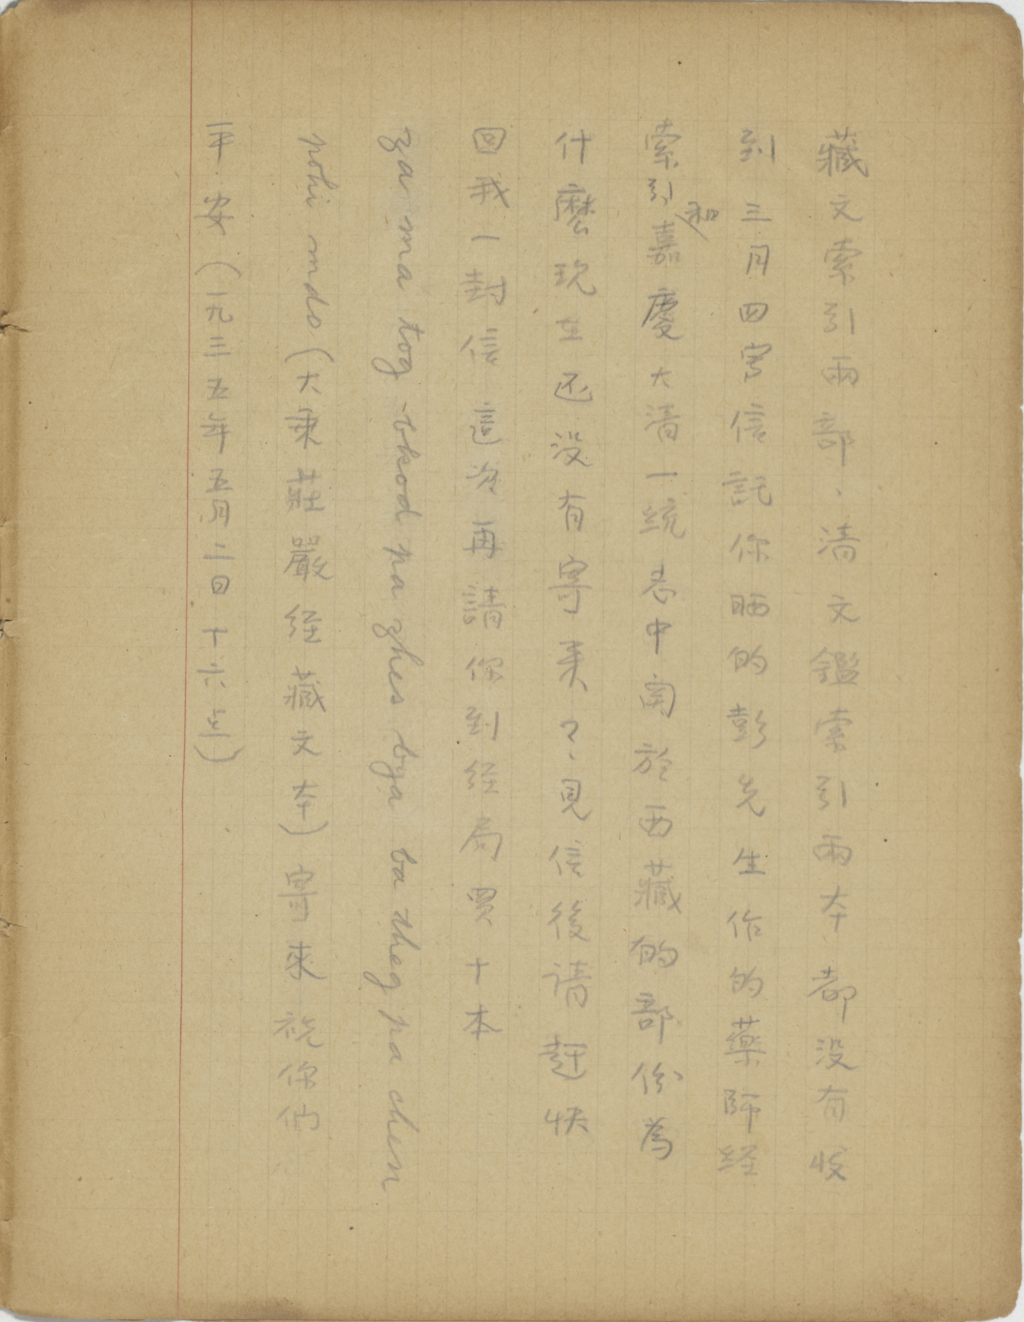 藏文索引兩部、清文鑑索引兩本都没有收
到三月四号信託你晒的彭先生作的藥師経
索引和嘉慶大清一統志中関於西藏的部份為
什麼現在还没有寄来？見信後请赶快
回我一封信這次再請你到経局買十本
za ma tog bkod pa zhes bya ba theg pa chen
pohi mdo（大乘莊嚴経藏文本）寄來祝你們
平安（一九三五年五月二日十六点）